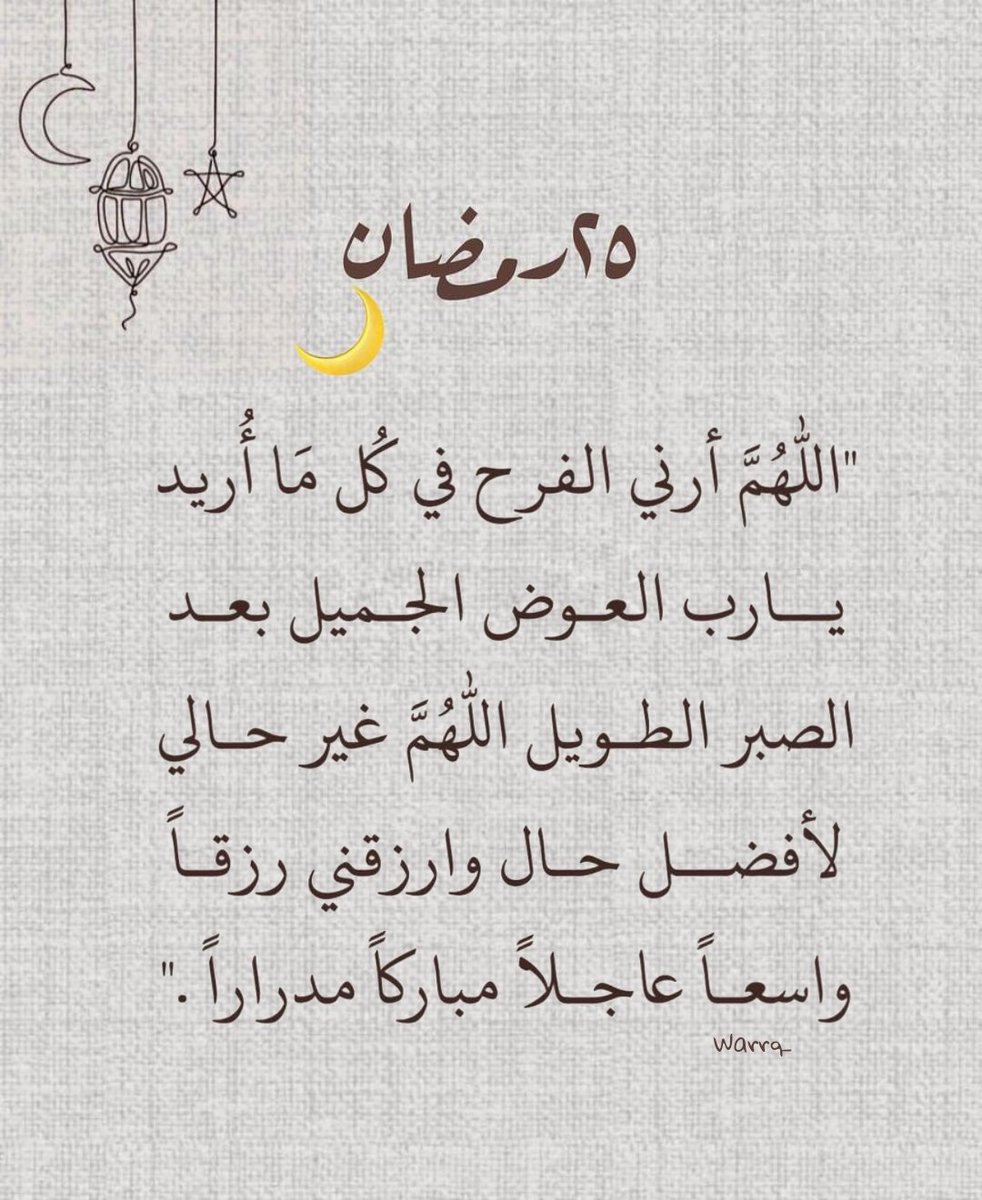 ٢٥رمضان
"اللّٰهُمَّ أرني الفرح في كُل مَا أُريد
يـــارب العـوض الجـميل بعـد
الصبر الطـويل اللّٰهُمَّ غير حـالي
لأفضـــل حـال وارزقني رزقـاً
واسعـاً عاجـلاً مباركاً مدراراً ."
Warrq_